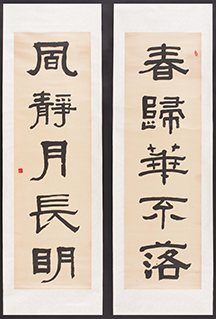 春歸華不落
風靜月長明